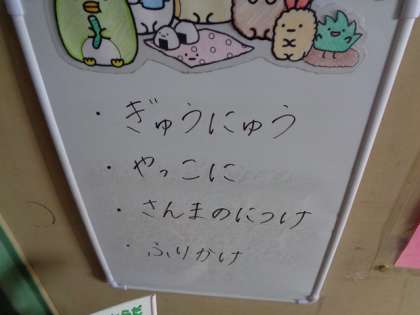 ・ぎゅうにゅう
・やっこに
・さんまのにつけ
・ふりかけ